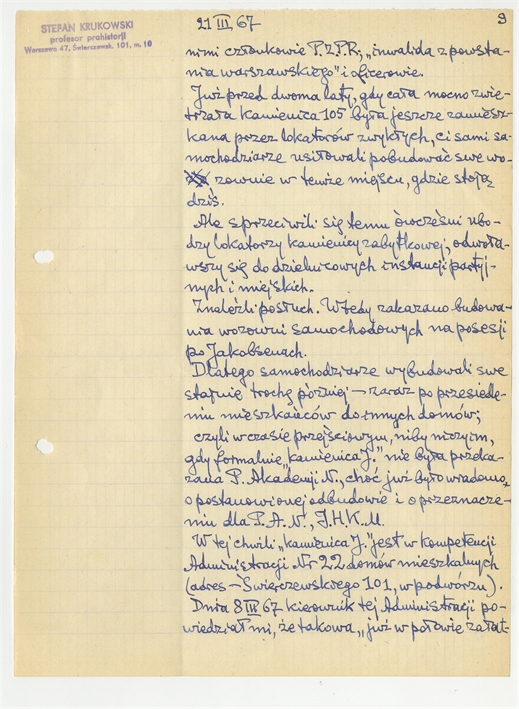 STEFAN KRUKOWSKI
profesor prahistorji
Warszawa 47, Świerczewsk. 101, m. 10
21 III 67
9
nimi członkowie P.Z.P.R., „inwalida z powsta-
nia warszawskiego" i oficerowie.
Już przed dwoma laty, gdy cała mocno zwie-
trzała kamienica 105 była jeszcze zamiesz-
kana przez lokatorów zwykłych, ci sami sa-
mochodziarze usiłowali pobudować swe wo-
zownie w temże miejscu, gdzie stoją
dziś.
Ale sprzeciwili się temu ówcześni ubo-
dzy lokatorzy kamienicy zabytkowej, odwoła-
wszy się do dzielnicowych instancji partyj-
nych i miejskich.
Znaleźli posłuch. Wtedy zakazano budowa-
nia wozowni samochodowych na posesji
po Jakobsenach.
Dlatego samochodziarze wybudowali swe
stajnie trochę później – zaraz po przesiedle-
niu mieszkańców do innych domów;
czyli w czasie przejściowym, niby niczyim,
gdy formalnie „kamienica J." nie była przeka-
zana P. Akademji N., choć już było wiadomo,
o postanowionej odbudowie i o przeznacze-
niu dla P.A.N., I.H.K.M.
W tej chwili „kamienica J." jest w kompetencji
Administracji Nr 22 domów mieszkalnych
(adres – Świerczewskiego 101, w podwórzu).
Dnia 8 III 67 kierownik tej Administracji po-
wiedział mi, że takowa „już w połowie załat-